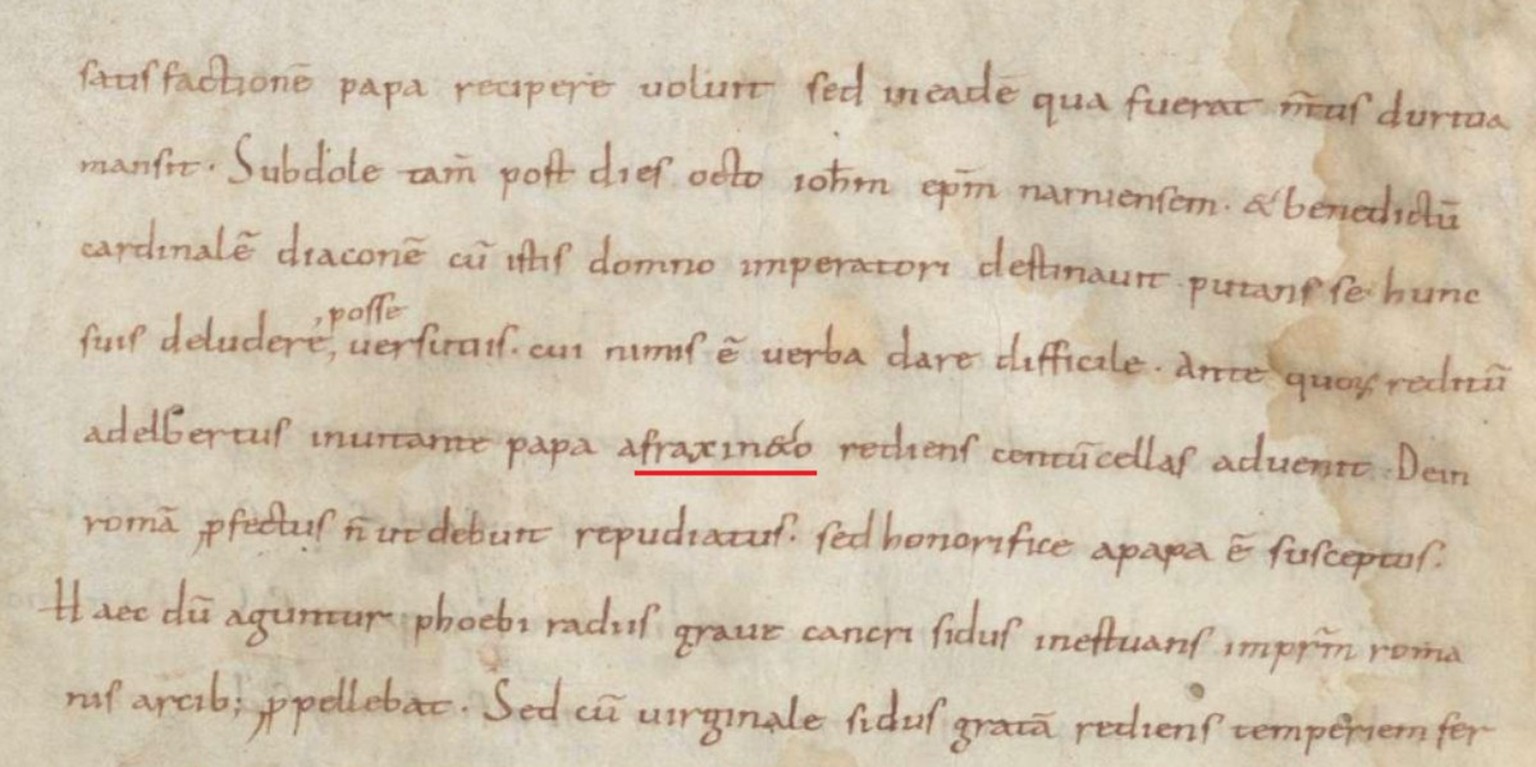 satisfactionē papa recipere voluit sed ineadē qua fuerat m̄tis duritia
mansit. Subdole tam̄ post dies octo ioh̄m ep̄m narniensem. & benedictū
cardinalē diaconē cū istis domno imperatori destinauit putans se hunc
posse
suis deludere, uersutiis. cui nimis ē uerba dare difficile. Ante quoꝝ reditū
adelbertus inuitante papa afraxin&o rediens centūcellas aduenit. Dein
romā ꝓfectus n̄ ut debuit repudiatus. sed honorifice apapa ē susceptus.
Haec dū aguntur phoebi radiis graue cancri sidus inestuans impr̄m roma
nis arcib; ꝓpellebat. Sed cū uirginale sidus gratā rediens temperiem fer